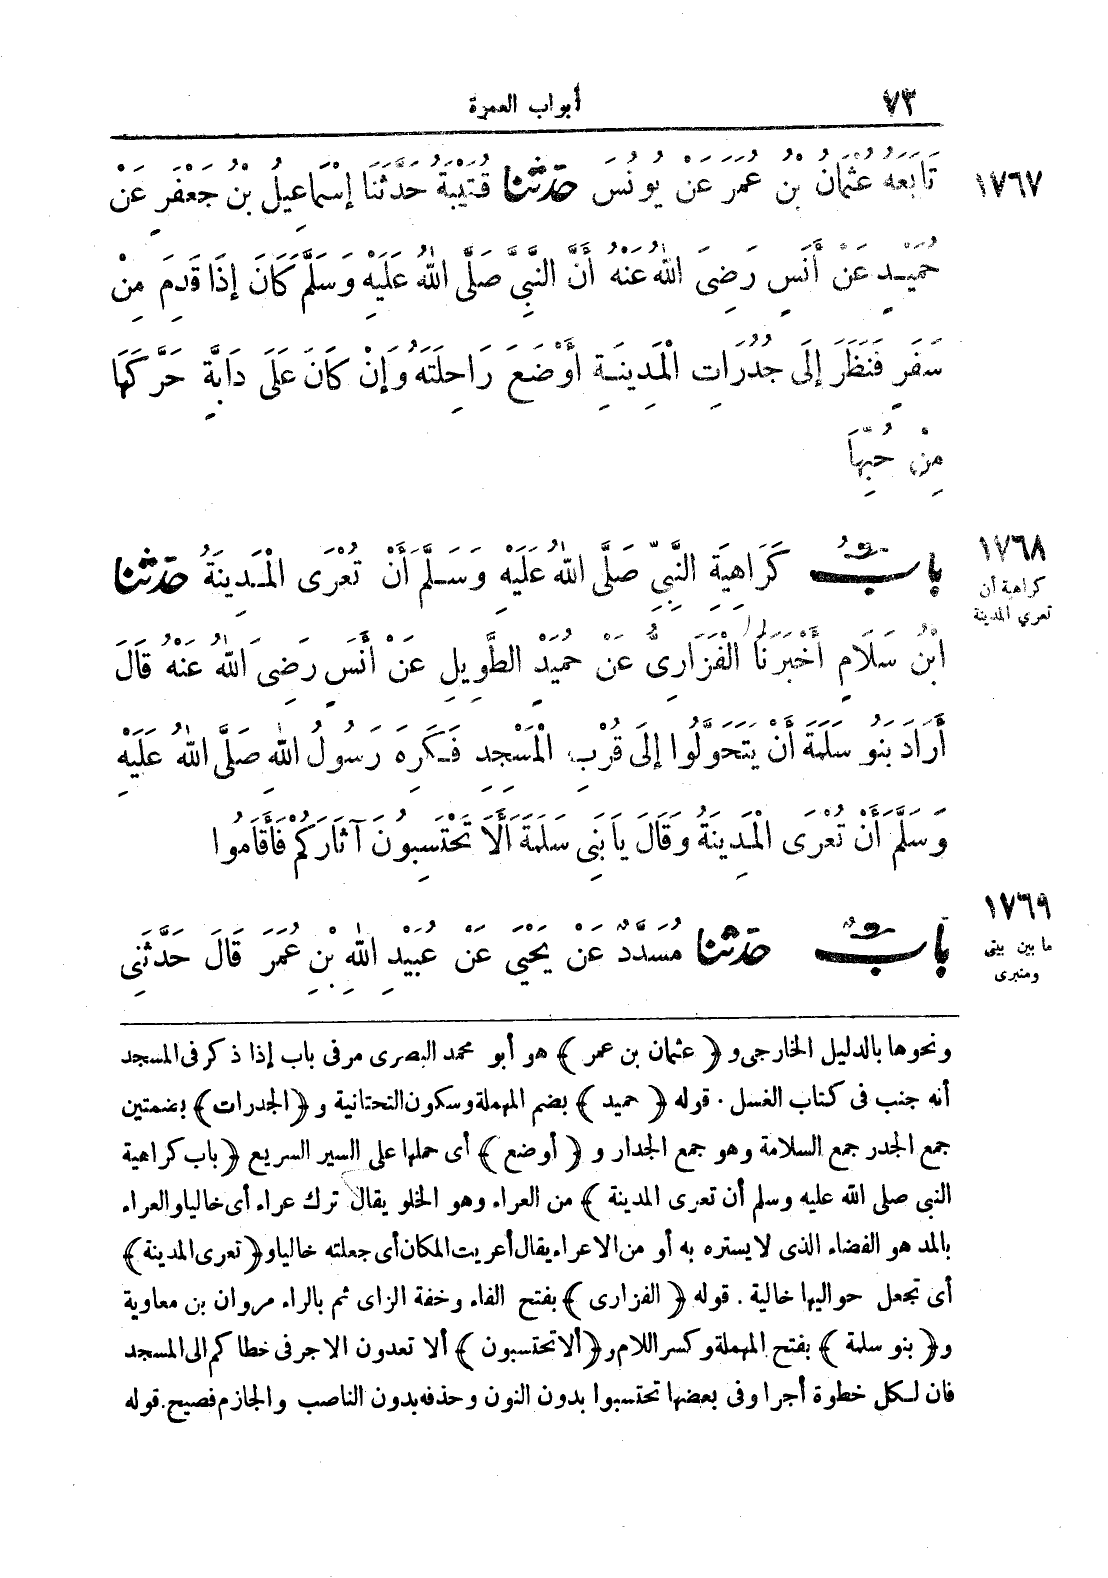 ٧٣ أبواب العمرة
١٧٦٧ تَابَعَهُ عُثْمَانُ بْنُ عُمَرَ عَنْ يُونُسَ حَدَّثَنَا قُتَيْبَةُ حَدَّثَنَا إِسْمَاعِيلُ بْنُ جَعْفَرٍ عَنْ
حُمَيْدٍ عَنْ أَنَسٍ رَضِىَ اللهُ عَنْهُ أَنَّ النَّبِىَّ صَلَّى اللهُ عَلَيْهِ وَسَلَّمَ كَانَ إِذَا قَدِمَ مِنْ
سَفَرٍ فَنَظَرَ إِلَى جُدُرَاتِ الْمَدِينَةِ أَوْضَعَ رَاحِلَتَهُ وَإِنْ كَانَ عَلَى دَابَّةٍ حَرَّكَهَا
مِنْ حُبِّهَا
١٧٦٨ بَابُ كَرَاهِيَةِ النَّبِىِّ صَلَّى اللهُ عَلَيْهِ وَسَلَّمَ أَنْ تُعْرَى الْمَدِينَةُ حَدَّثَنَا
كراهية أن
تعرى المدينة
ابْنُ سَلَامٍ أَخْبَرَنَا الْفَزَارِىُّ عَنْ حُمَيْدٍ الطَّوِيلِ عَنْ أَنَسٍ رَضِىَ اللهُ عَنْهُ قَالَ
أَرَادَ بَنُو سَلِمَةَ أَنْ يَتَحَوَّلُوا إِلَى قُرْبِ الْمَسْجِدِ فَكَرِهَ رَسُولُ اللهِ صَلَّى اللهُ عَلَيْهِ
وَسَلَّمَ أَنْ تُعْرَى الْمَدِينَةُ وَقَالَ يَا بَنِى سَلِمَةَ أَلَا تَحْتَسِبُونَ آثَارَكُمْ فَأَقَامُوا
١٧٦٩ بَابٌ حَدَّثَنَا مُسَدَّدٌ عَنْ يَحْيَى عَنْ عُبَيْدِ اللهِ بْنِ عُمَرَ قَالَ حَدَّثَنِى
ما بين بيتى
ومنبرى
ونحوها بالدليل الخارجى و ﴿ عثمان بن عمر ﴾ هو أبو محمد البصرى مر فى باب إذا ذكر فى المسجد
أنه جنب فى كتاب الغسل . قوله ﴿ حميد ﴾ بضم المهملة وسكون التحتانية و ﴿الجدرات﴾ بضمتين
جمع الجدر جمع السلامة وهو جمع الجدار و ﴿ أوضع ﴾ أى حملها على السير السريع ﴿باب كراهية
النبى صلى الله عليه وسلم أن تعرى المدينة ﴾ من العراء وهو الخلو يقال ترك عراء أى خاليا والعراء
بالمد هو الفضاء الذى لا يستره به أو من الاعراء يقال أعريت المكان أى جعلته خاليا و﴿تعرى المدينة﴾
أى تجعل حواليها خالية . قوله ﴿ الفزارى ﴾ بفتح الفاء وخفة الزاى ثم بالراء مروان بن معاوية
و﴿ بنو سلمة ﴾ بفتح المهملة وكسر اللام و﴿ألا تحتسبون ﴾ ألا تعدون الاجر فى خطاكم الى المسجد
فان لكل خطوة أجرا وفى بعضها تحتسبوا بدون النون وحذفه بدون الناصب والجازم فصيح. قوله